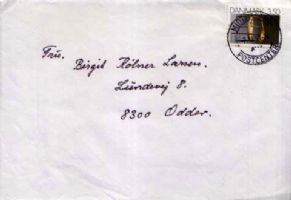 DANMARK 3.50
POSTCENTER
Fru.
Birgit Hölner Larsen.
Lundevej 8.
8300 Odder.